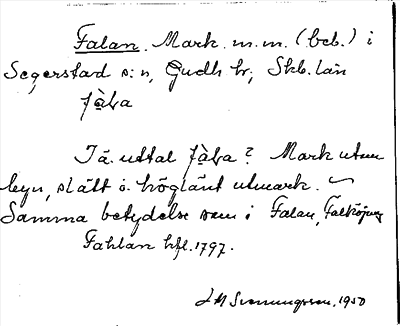 Falan. Mark m.m. (beb.) i
Segerstad s:n, Gudh hr, Skb. län
fàla
Iä. uttal fàla? Mark utom
byn, slätt o. höglänt utmark. ~
Samma betydelse som i Falan, Falköping
Fahlan hfl. 1797.
J M Svenungsson, 1950